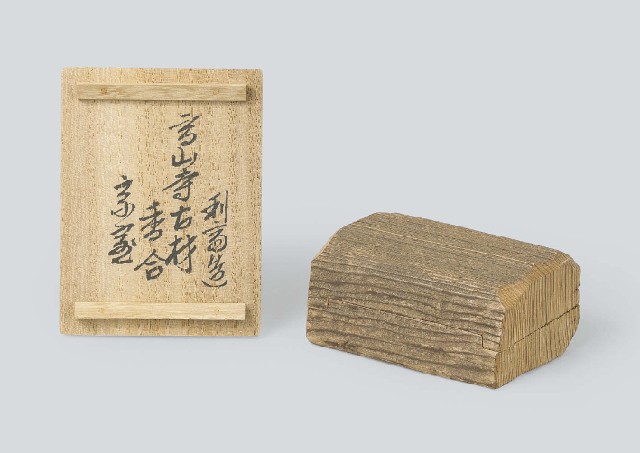 利斎造
高山寺古材
香合
宗